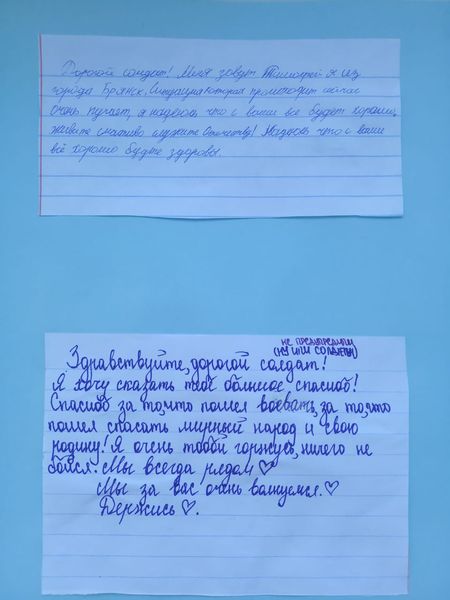 Дорогой солдат! Меня зовут Тимофей я из
города Брянск. Ситуация которая происходит сейчас
очень пугает, я надеюсь что с вами все будет хорошо,
живите счастливо служите Отечеству! Надеюсь что с вами
всё хорошо будте здоровы.
не предпредили
(ну или солдатам)
Здравствуйте, дорогой солдат!
Я хочу сказать тебе большое спасибо!
Спасибо за то, что пошел воевать, за то, что
пошел спасать мирный народ и свою
родину! Я очень тобой горжусь, ничего не
бойся. Мы всегда рядом ♡
Мы за вас очень волнуемся. ♡
Держись ♡.